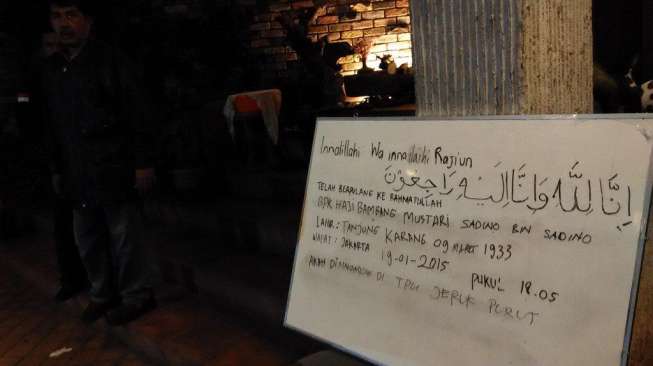 Innalillahi Wa innailaihi Rajiun
إِنَّا لِلَّهِ وَإِنَّا إِلَيْهِ رَاجِعُوْنَ
TELAH BERPULANG KE RAHMATULLAH
BPK HAJI BAMBANG MUSTARI SADINO BIN SADINO
LAHIR : TANJUNG KARANG 09 MARET 1933
WAFAT : JAKARTA 19-01-2015 PUKUL 18.05
AKAN DIMAKAMKAN DI TPU JERUK PURUT